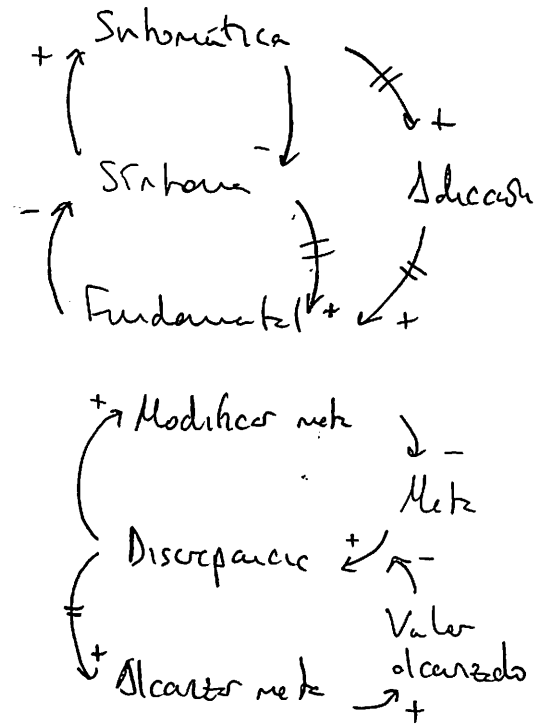 + Sintomática
+
-
Síntoma
Adicción
-
Fundamental +
+
+ Modificar meta
-
Meta
+
Discrepancia -
Valor
+ alcanzado
Alcanzar meta
+